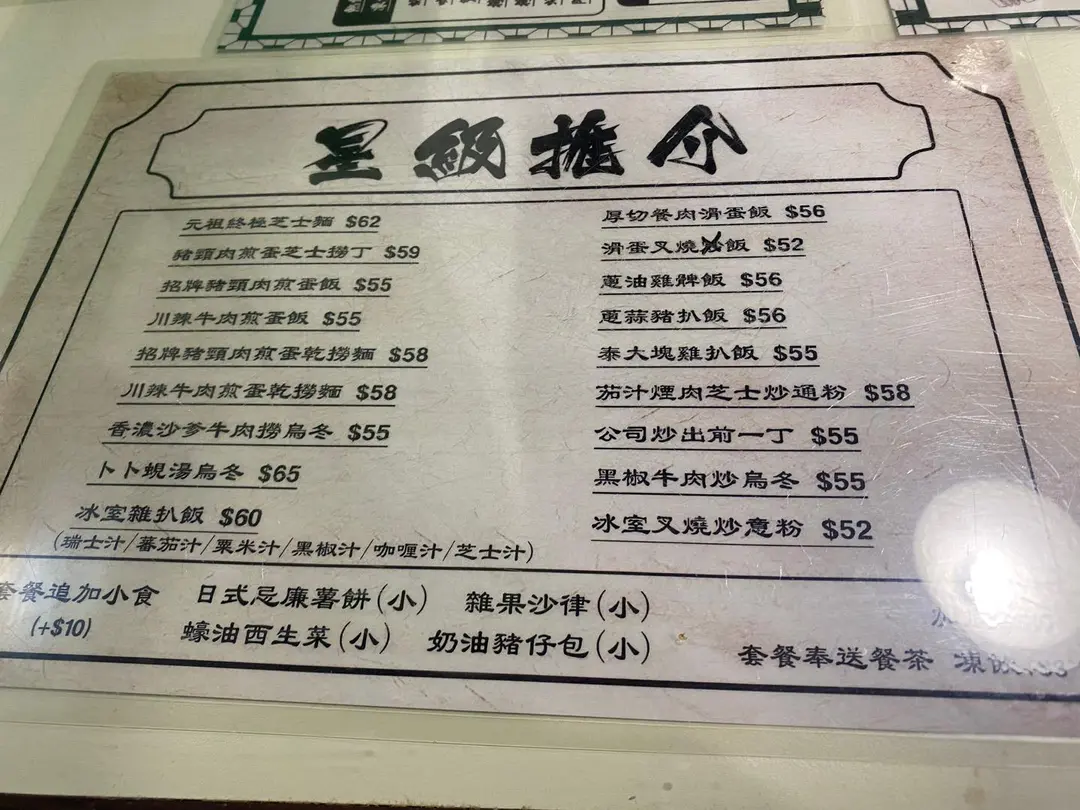 星級推介
元祖終極芝士麵 $62
豬頸肉煎蛋芝士撈丁 $59
招牌豬頸肉煎蛋飯 $55
川辣牛肉煎蛋飯 $55
招牌豬頸肉煎蛋乾撈麵 $58
川辣牛肉煎蛋乾撈麵 $58
香濃沙爹牛肉撈烏冬 $55
卜卜蜆湯烏冬 $65
冰室雜扒飯 $60
(瑞士汁/蕃茄汁/粟米汁/黑椒汁/咖喱汁/芝士汁)
厚切餐肉滑蛋飯 $56
滑蛋叉燒飯 $52
蔥油雞髀飯 $56
蔥蒜豬扒飯 $56
泰大塊雞扒飯 $55
茄汁煙肉芝士炒通粉 $58
公司炒出前一丁 $55
黑椒牛肉炒烏冬 $55
冰室叉燒炒意粉 $52
套餐追加小食 日式忌廉薯餅(小) 雜果沙律(小)
(+$10) 蠔油西生菜(小) 奶油豬仔包(小)
套餐奉送餐茶 凍飲